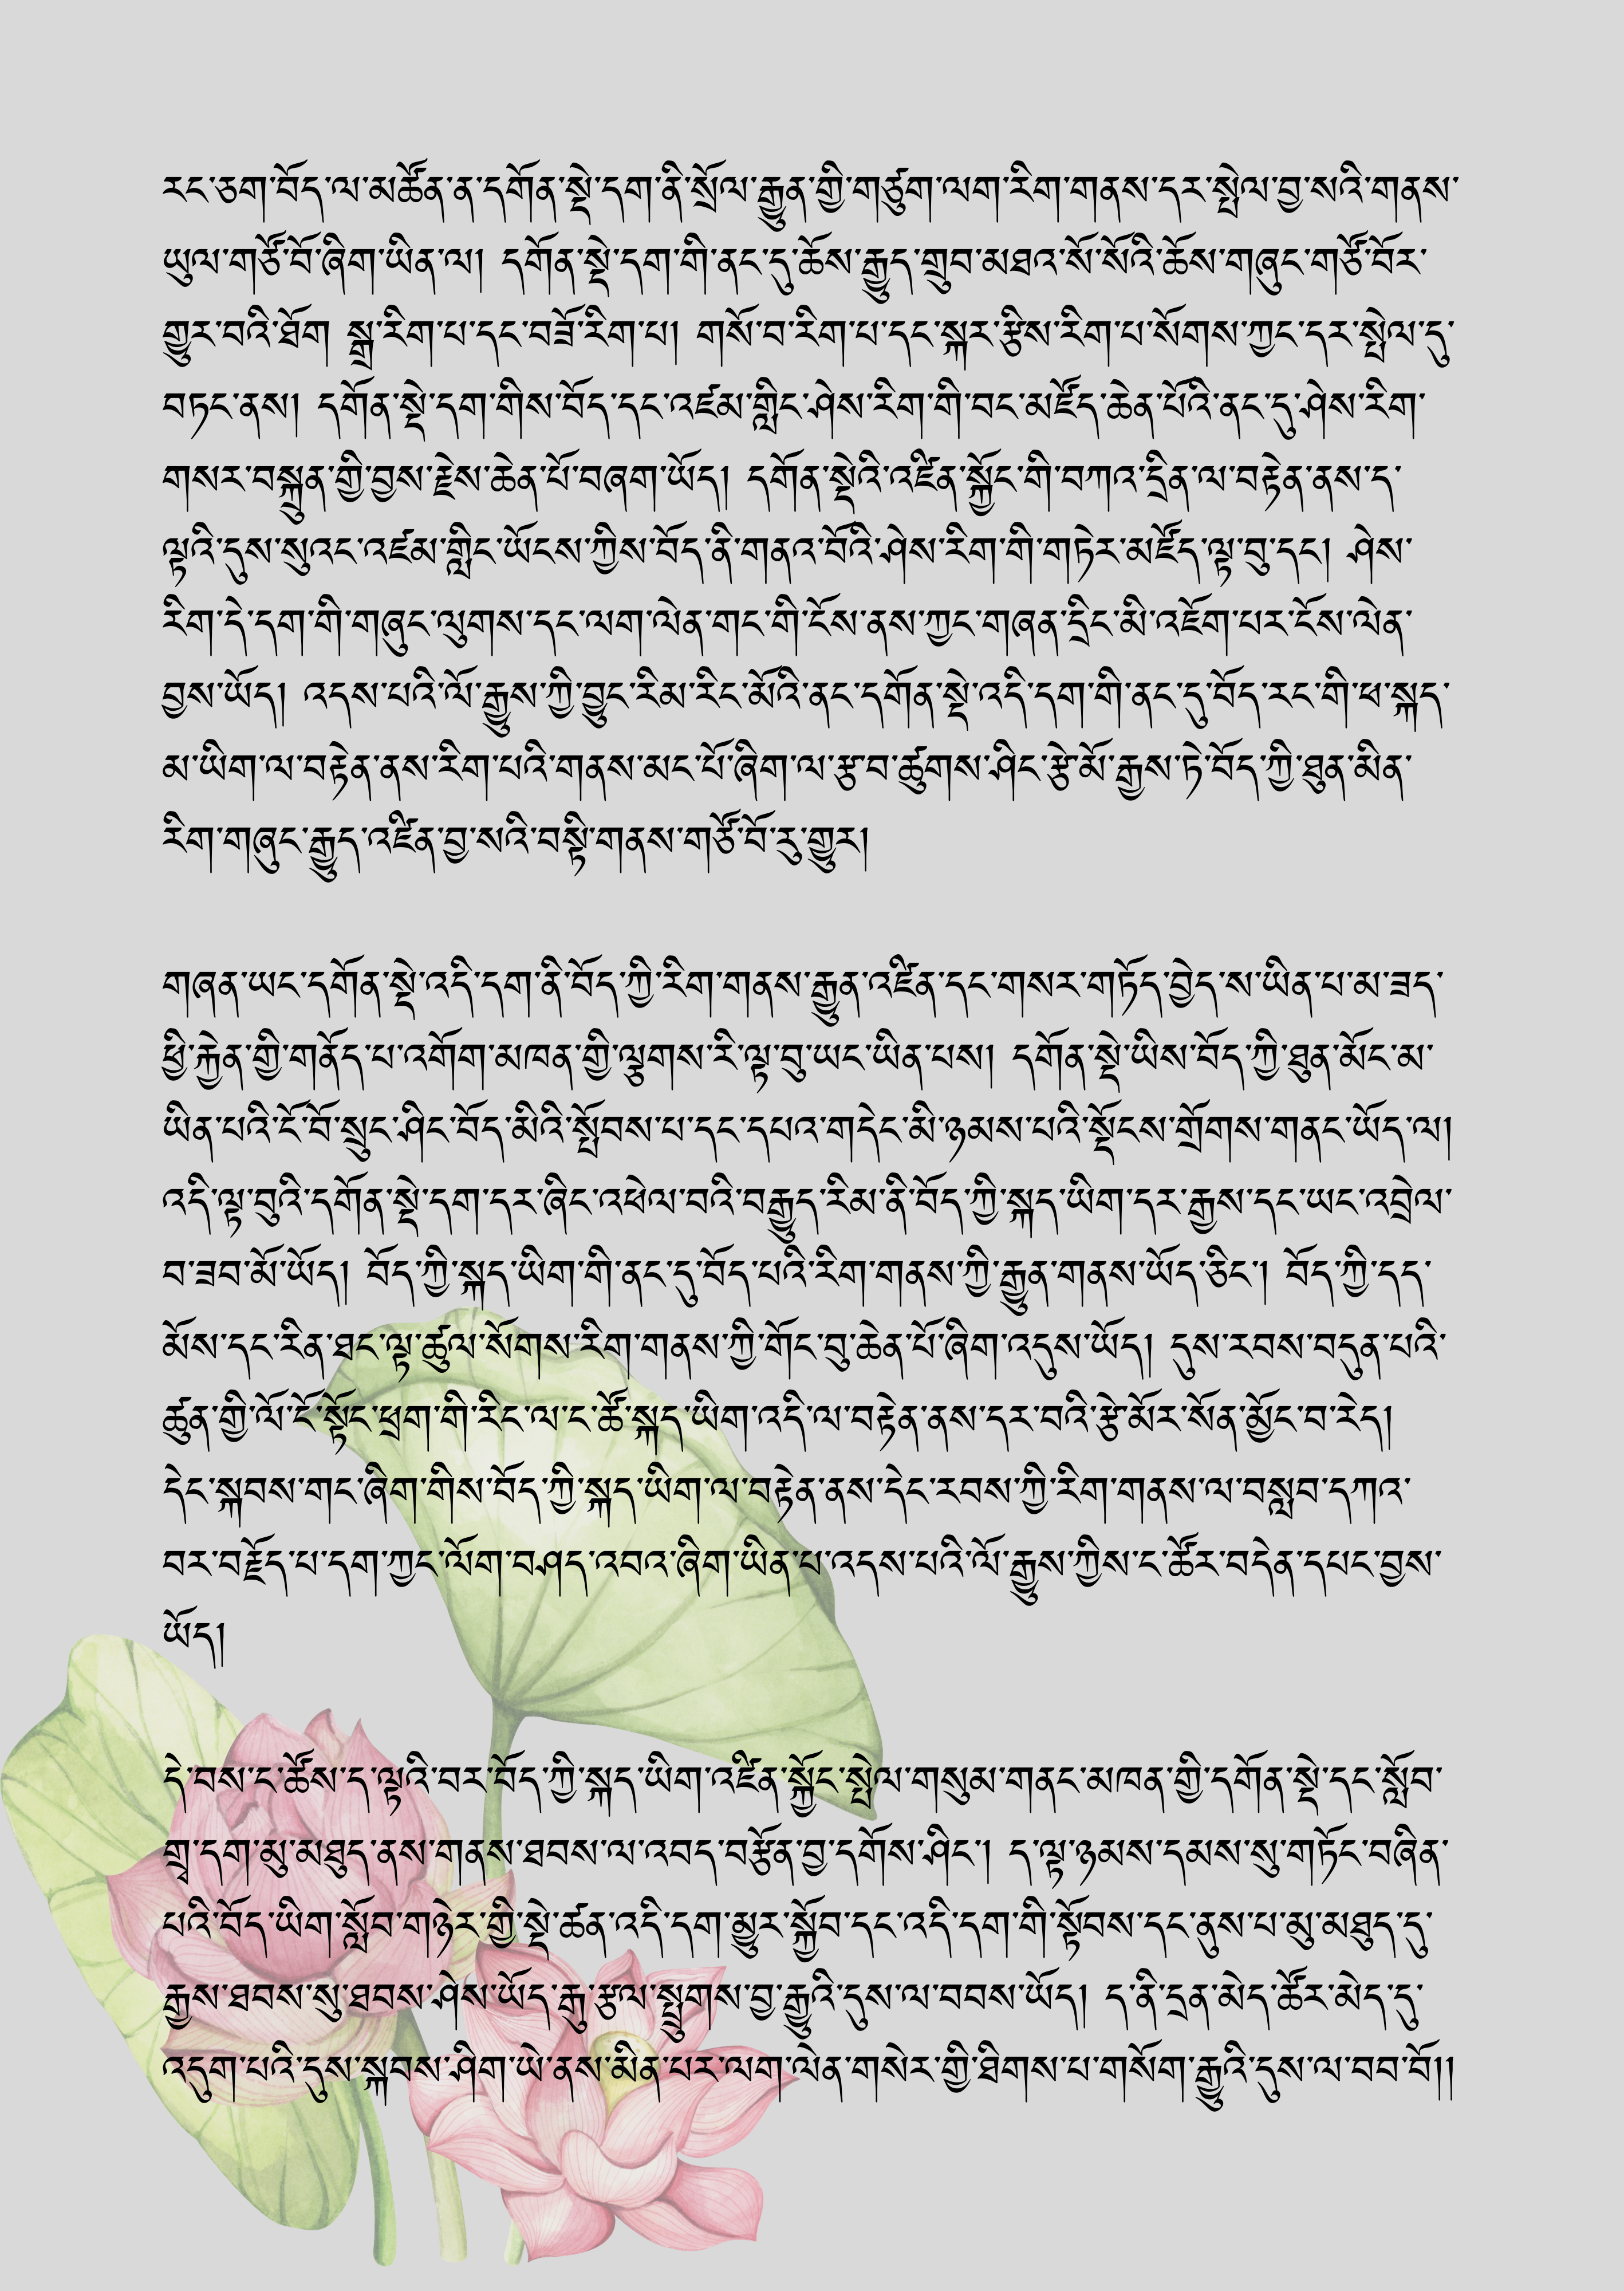 རང་ཅག་བོད་ལ་མཚོན་ན་དགོན་སྡེ་དག་ནི་སྲོལ་རྒྱུན་གྱི་གཙུག་ལག་རིག་གནས་དར་སྤེལ་བྱ་སའི་གནས་
ཡུལ་གཙོ་བོ་ཞིག་ཡིན་ལ། དགོན་སྡེ་དག་གི་ནང་དུ་ཆོས་རྒྱུད་གྲུབ་མཐའ་སོ་སོའི་ཆོས་གཞུང་གཙོ་བོར་
གྱུར་བའི་ཐོག སྒྲ་རིག་པ་དང་བཟོ་རིག་པ། གསོ་བ་རིག་པ་དང་སྐར་རྩིས་རིག་པ་སོགས་ཀྱང་དར་སྤེལ་དུ་
བཏང་ནས། དགོན་སྡེ་དག་གིས་བོད་དང་འཛམ་གླིང་ཤེས་རིག་གི་བང་མཛོད་ཆེན་པོའི་ནང་དུ་ཤེས་རིག་
གསར་བསྐྲུན་གྱི་བྱས་རྗེས་ཆེན་པོ་བཞག་ཡོད། དགོན་སྡེའི་འཛིན་སྐྱོང་གི་བཀའ་དྲིན་ལ་བརྟེན་ནས་ད་
ལྟའི་དུས་སུའང་འཛམ་གླིང་ཡོངས་ཀྱིས་བོད་ནི་གནའ་བོའི་ཤེས་རིག་གི་གཏེར་མཛོད་ལྟ་བུ་དང། ཤེས་
རིག་དེ་དག་གི་གཞུང་ལུགས་དང་ལག་ལེན་གང་གི་ངོས་ནས་ཀྱང་གཞན་དྲིང་མི་འཇོག་པར་ངོས་ལེན་
བྱས་ཡོད། འདས་པའི་ལོ་རྒྱུས་ཀྱི་བྱུང་རིམ་རིང་མོའི་ནང་དགོན་སྡེ་འདི་དག་གི་ནང་དུ་བོད་རང་གི་ཕ་སྐད་
མ་ཡིག་ལ་བརྟེན་ནས་རིག་པའི་གནས་མང་པོ་ཞིག་ལ་རྩ་བ་ཚུགས་ཤིང་རྩེ་མོ་རྒྱས་ཏེ་བོད་ཀྱི་ཐུན་མིན་
རིག་གཞུང་རྒྱུད་འཛིན་བྱ་སའི་བསྟི་གནས་གཙོ་བོ་རུ་གྱུར།
གཞན་ཡང་དགོན་སྡེ་འདི་དག་ནི་བོད་ཀྱི་རིག་གནས་རྒྱུན་འཛིན་དང་གསར་གཏོད་བྱེད་ས་ཡིན་པ་མ་ཟད་
ཕྱི་རྐྱེན་གྱི་གནོད་པ་འགོག་མཁན་གྱི་ལྕགས་རི་ལྟ་བུ་ཡང་ཡིན་པས། དགོན་སྡེ་ཡིས་བོད་ཀྱི་ཐུན་མོང་མ་
ཡིན་པའི་ངོ་བོ་སྲུང་ཞིང་བོད་མིའི་སྤོབས་པ་དང་དཔའ་གདེང་མི་ཉམས་པའི་སྡོངས་གྲོགས་གནང་ཡོད་ལ།
འདི་ལྟ་བུའི་དགོན་སྡེ་དག་དར་ཞིང་འཕེལ་བའི་བརྒྱུད་རིམ་ནི་བོད་ཀྱི་སྐད་ཡིག་དར་རྒྱས་དང་ཡང་འབྲེལ་
བ་ཟབ་མོ་ཡོད། བོད་ཀྱི་སྐད་ཡིག་གི་ནང་དུ་བོད་པའི་རིག་གནས་ཀྱི་རྒྱུན་གནས་ཡོད་ཅིང་། བོད་ཀྱི་དད་
མོས་དང་རིན་ཐང་ལྟ་ཚུལ་སོགས་རིག་གནས་ཀྱི་གོང་བུ་ཆེན་པོ་ཞིག་འདུས་ཡོད། དུས་རབས་བདུན་པའི་
ཚུན་གྱི་ལོ་ངོ་སྟོང་ཕྲག་གི་རིང་ལ་ང་ཚོ་སྐད་ཡིག་འདི་ལ་བརྟེན་ནས་དར་བའི་རྩེ་མོར་སོན་མྱོང་བ་རེད།
དེང་སྐབས་གང་ཞིག་གིས་བོད་ཀྱི་སྐད་ཡིག་ལ་བརྟེན་ནས་དེང་རབས་ཀྱི་རིག་གནས་ལ་བསླབ་དཀའ་
བར་བརྗོད་པ་དག་ཀྱང་ལོག་བཤད་འབའ་ཞིག་ཡིན་པ་འདས་པའི་ལོ་རྒྱུས་ཀྱིས་ང་ཚོར་བདེན་དཔང་བྱས་
ཡོད།
དེ་བས་ང་ཚོས་ད་ལྟའི་བར་བོད་ཀྱི་སྐད་ཡིག་འཛིན་སྐྱོང་སྤེལ་གསུམ་གནང་མཁན་གྱི་དགོན་སྡེ་དང་སློབ་
གྲྭ་དག་མུ་མཐུད་ནས་གནས་ཐབས་ལ་འབད་བརྩོན་བྱ་དགོས་ཤིང་། ད་ལྟ་ཉམས་དམས་སུ་གཏོང་བཞིན་
པའི་བོད་ཡིག་སློབ་གཉེར་གྱི་སྡེ་ཚན་འདི་དག་མྱུར་སྐྱོབ་དང་འདི་དག་གི་སྟོབས་དང་ནུས་པ་མུ་མཐུད་དུ་
རྒྱས་ཐབས་སུ་ཐབས་ཤེས་ཡོད་རྒུ་རྩལ་སྤྲུགས་བྱ་རྒྱུའི་དུས་ལ་བབས་ཡོད། ད་ནི་དྲན་མེད་ཚོར་མེད་དུ་
འདུག་པའི་དུས་སྐབས་ཤིག་ཡེ་ནས་མིན་པར་ལག་ལེན་གསེར་གྱི་ཐིགས་པ་གསོག་རྒྱུའི་དུས་ལ་བབ་བོ།།